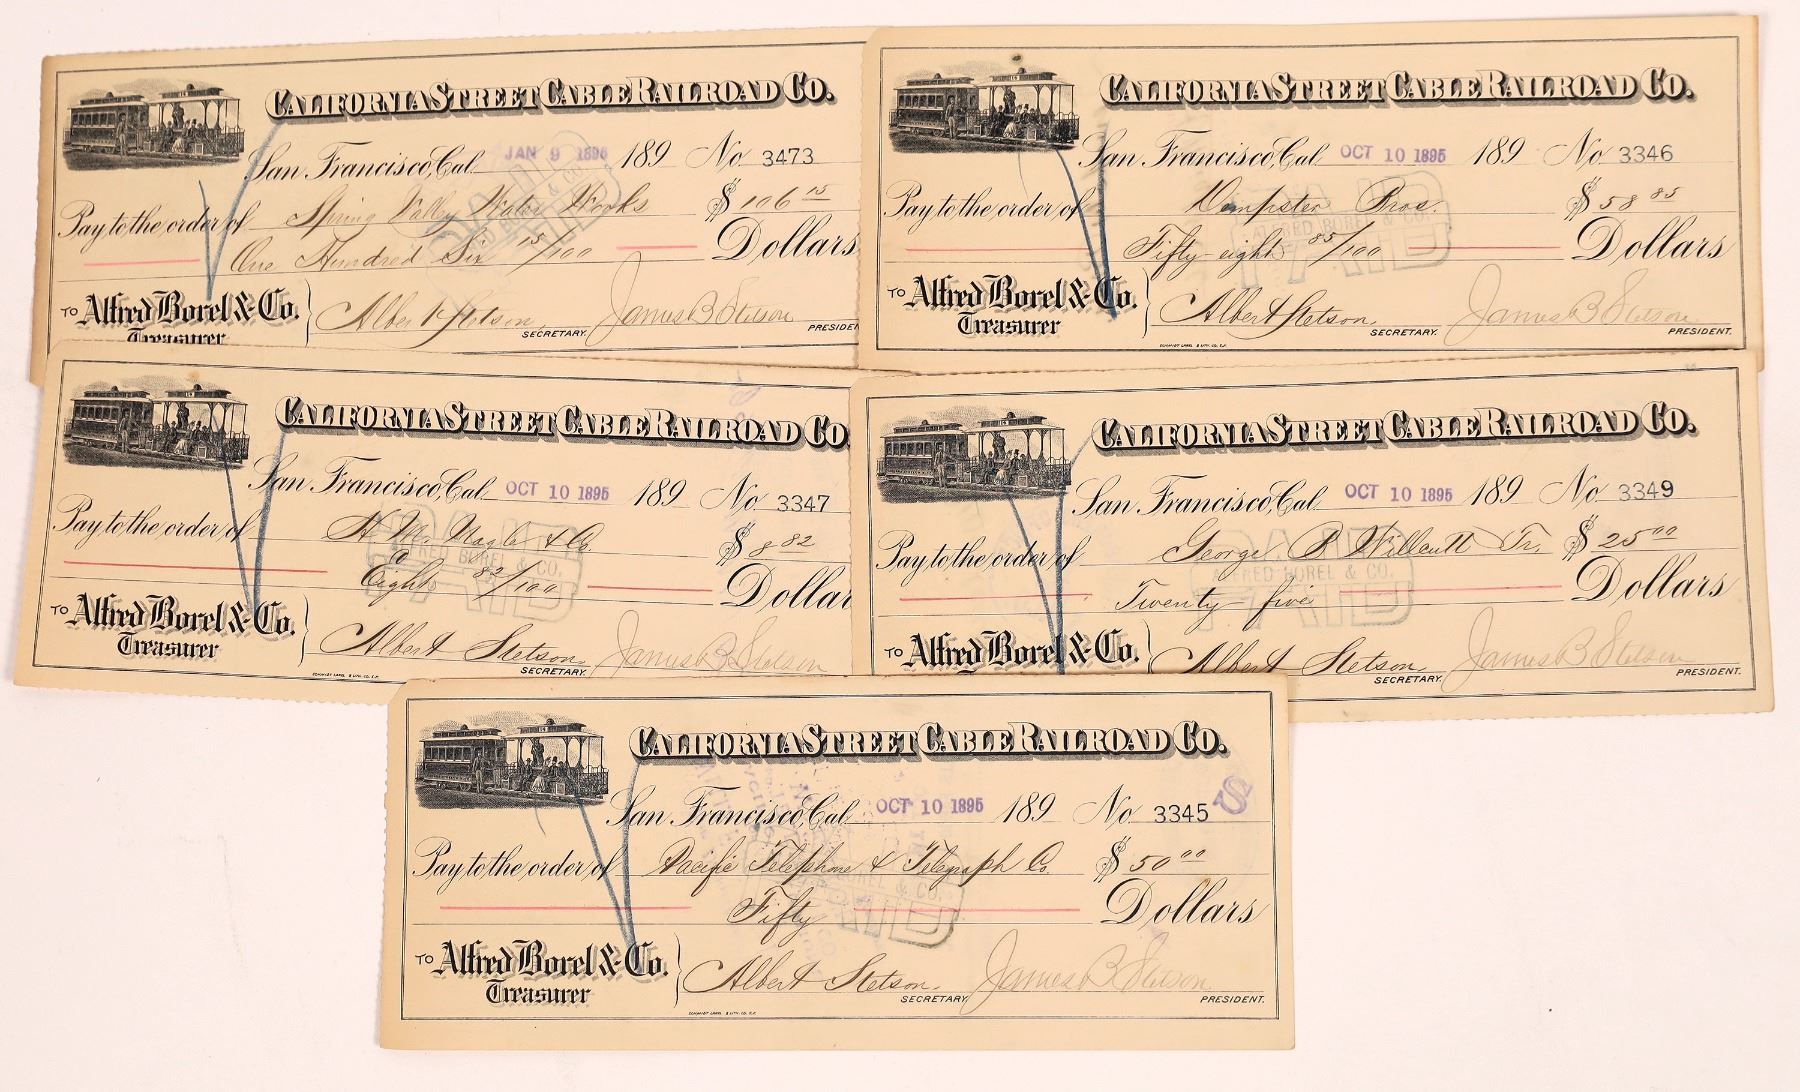 CALIFORNIA STREET CABLE RAILROAD CO.
San Francisco, Cal. JAN 9 1896 189 No 3473
Pay to the order of Spring Valley Water Works $ 106 15
One Hundred Six 15/100 Dollars
TO Alfred Borel & Co. Albert Stetson SECRETARY. James B Stetson PRESIDEN
Treasurer
CALIFORNIA STREET CABLE RAILROAD CO.
San Francisco, Cal. OCT 10 1895 189 No 3346
Pay to the order of Dempster Bros. $ 58 85
ALFRED BOREL & CO.
PAID
Fifty-eight 85/100 Dollars
TO Alfred Borel & Co. Albert Stetson. SECRETARY. James B Stetson PRESIDENT.
Treasurer
SCHMIDT LABEL & LITH. CO. S.F.
CALIFORNIA STREET CABLE RAILROAD CO
San Francisco, Cal. OCT 10 1895 189 No 3347
Pay to the order of H. M. Nagle & Co. $ 8 82
ALFRED BOREL & CO.
PAID
Eight 82/100 Dollar
TO Alfred Borel & Co. Albert Stetson. SECRETARY. James B Stetson
Treasurer
SCHMIDT LABEL & LITH. CO. S.F.
CALIFORNIA STREET CABLE RAILROAD CO.
San Francisco, Cal. OCT 10 1895 189 No 3349
Pay to the order of George P Willcutt Tr. $ 25 00
ALFRED BOREL & CO.
PAID
Twenty-five Dollars
TO Alfred Borel & Co. Albert Stetson. SECRETARY. James B Stetson PRESIDENT.
CALIFORNIA STREET CABLE RAILROAD CO.
San Francisco, Cal. OCT 10 1895 189 No 3345 S
Pay to the order of Pacific Telephone & Telegraph Co. $ 50 00
Fifty Dollars
PAID
TO Alfred Borel & Co. Albert Stetson. SECRETARY. James B Stetson PRESIDENT.
Treasurer
SCHMIDT LABEL & LITH. CO. S.F.